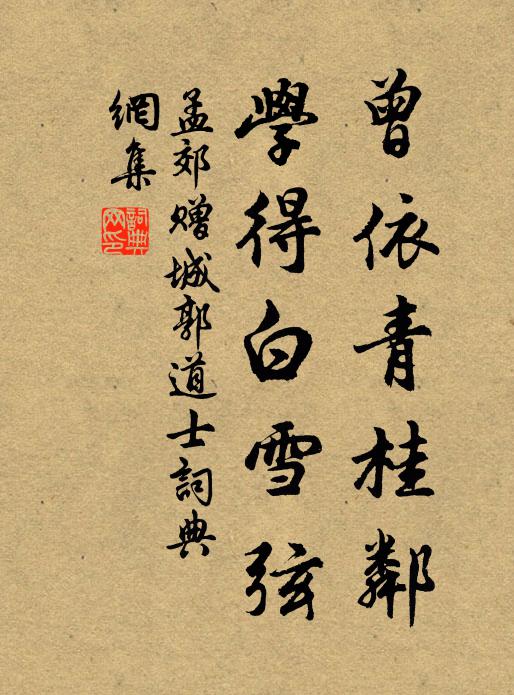 曾依青桂鄰
學得白雪弦
孟郊贈城郭道士詞典
網集
詞典网印